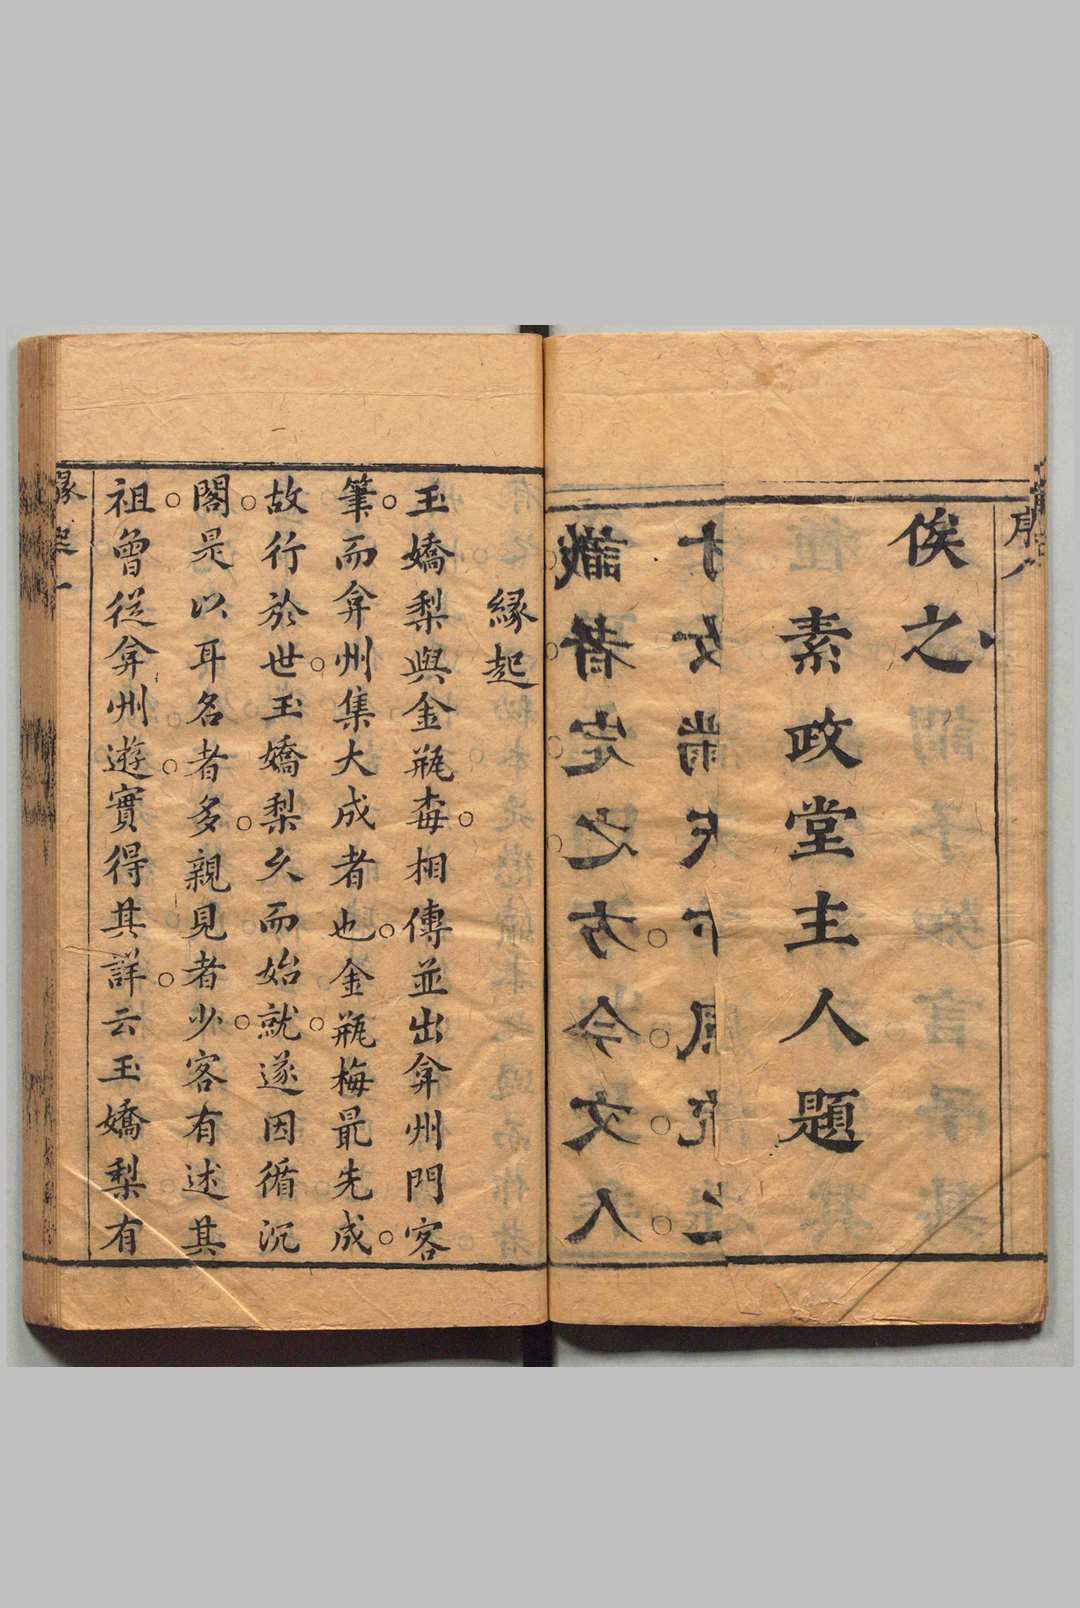 序 八
俟之
素政堂主人題
識者定之方今文人
才女滿天下風流之
緣起
玉嬌梨與金瓶梅相傳並出弇州門客
筆而弇州集大成者也金瓶梅最先成
故行於世玉嬌梨久而始就遂因循沉
閣是以耳名者多親見者少客有述其
祖曾從弇州遊實得其詳云玉嬌梨有
緣起 一